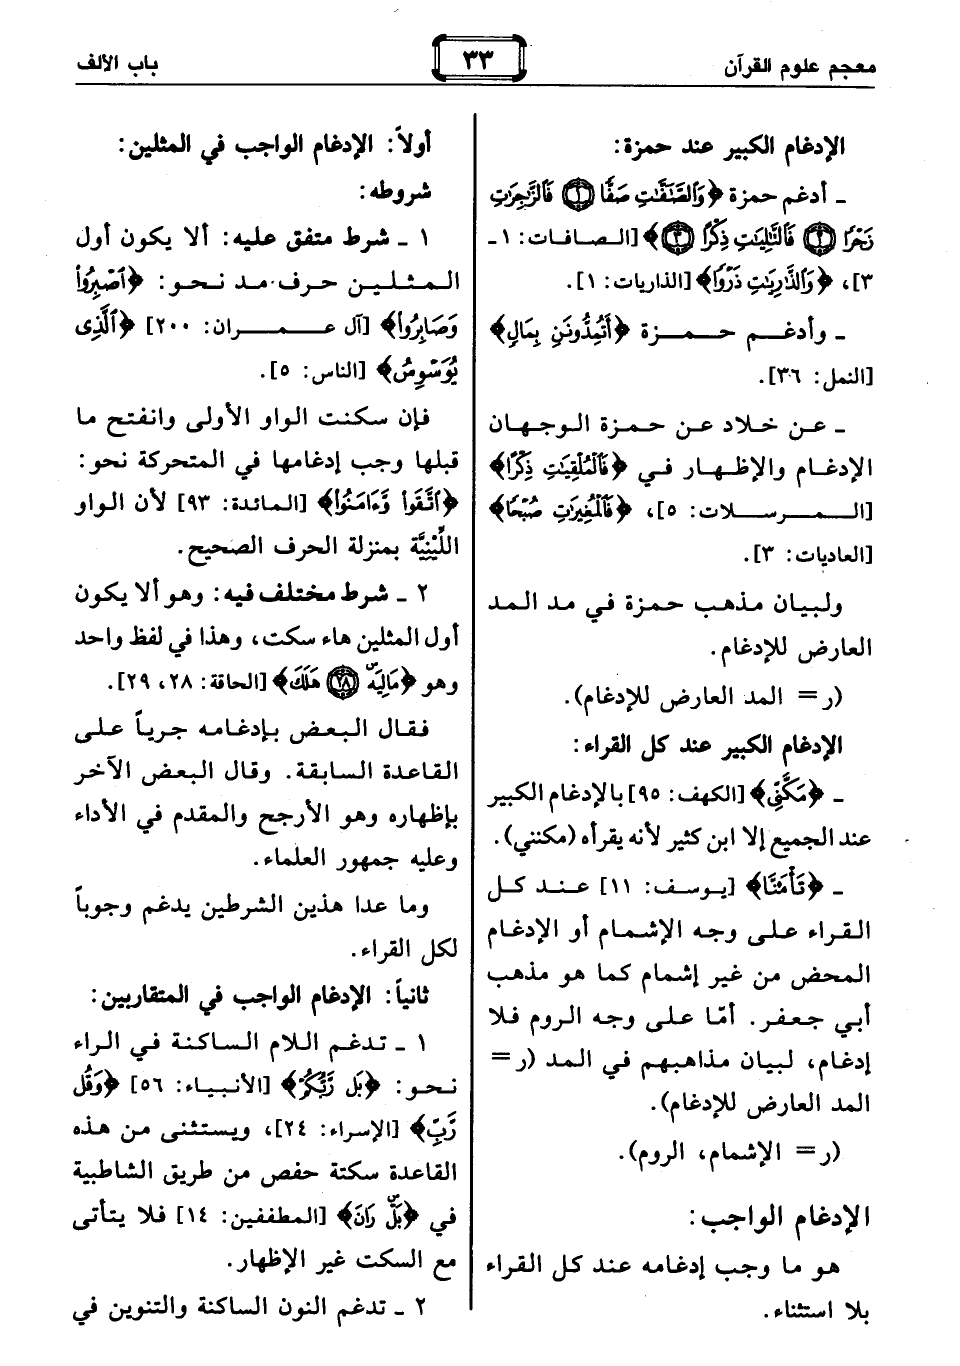 معجم علوم القرآن
٣٣
باب الألف
الإدغام الكبير عند حمزة:
ـ أدغم حمزة ﴿وَالصَّٰٓفَّٰتِ صَفًّا ١ فَالزَّٰجِرَٰتِ
زَجْرًا ٢ فَالتَّٰلِيَٰتِ ذِكْرًا ٣﴾ [الصافات: ١ ـ
٣]، ﴿وَالذَّٰرِيَٰتِ ذَرْوًا﴾ [الذاريات: ١].
ـ وأدغم حمزة ﴿أَتُمِدُّونَنِ بِمَالٍ﴾
[النمل: ٣٦].
ـ عن خلاد عن حمزة الوجهان
الإدغام والإظهار في ﴿فَالْمُلْقِيَٰتِ ذِكْرًا﴾
[المرسلات: ٥]، ﴿فَالْمُغِيرَٰتِ صُبْحًا﴾
[العاديات: ٣].
ولبيان مذهب حمزة في مد المد
العارض للإدغام.
(ر= المد العارض للإدغام).
الإدغام الكبير عند كل القراء:
ـ ﴿مَكَّنِّي﴾ [الكهف: ٩٥] بالإدغام الكبير
عند الجميع إلا ابن كثير لأنه يقرأه (مكنني).
ـ ﴿تَأْمَ۫نَّا﴾ [يوسف: ١١] عند كل
القراء على وجه الإشمام أو الإدغام
المحض من غير إشمام كما هو مذهب
أبي جعفر. أمّا على وجه الروم فلا
إدغام، لبيان مذاهبهم في المد (ر=
المد العارض للإدغام).
(ر= الإشمام، الروم).
الإدغام الواجب:
هو ما وجب إدغامه عند كل القراء
بلا استثناء.
أولاً: الإدغام الواجب في المثلين:
شروطه:
١ ـ شرط متفق عليه: ألا يكون أول
المثلين حرف مد نحو: ﴿اصْبِرُوا
وَصَابِرُوا﴾ [آل عمران: ٢٠٠] ﴿الَّذِى
يُوَسْوِسُ﴾ [الناس: ٥].
فإن سكنت الواو الأولى وانفتح ما
قبلها وجب إدغامها في المتحركة نحو:
﴿اتَّقَوا وَّءَامَنُوا﴾ [المائدة: ٩٣] لأن الواو
اللِّيْنِيَّة بمنزلة الحرف الصحيح.
٢ ـ شرط مختلف فيه: وهو ألا يكون
أول المثلين هاء سكت، وهذا في لفظ واحد
وهو ﴿مَالِيَهْۜ ٢٨ هَلَكَ﴾ [الحاقة: ٢٨، ٢٩].
فقال البعض بإدغامه جرياً على
القاعدة السابقة. وقال البعض الآخر
بإظهاره وهو الأرجح والمقدم في الأداء
وعليه جمهور العلماء.
وما عدا هذين الشرطين يدغم وجوباً
لكل القراء.
ثانياً: الإدغام الواجب في المتقاربين:
١ ـ تدغم اللام الساكنة في الراء
نحو: ﴿بَل رَّبُّكُمْ﴾ [الأنبياء: ٥٦] ﴿وَقُل
رَّبِّ﴾ [الإسراء: ٢٤]، ويستثنى من هذه
القاعدة سكتة حفص من طريق الشاطبية
في ﴿بَلْۜ رَانَ﴾ [المطففين: ١٤] فلا يتأتى
مع السكت غير الإظهار.
٢ ـ تدغم النون الساكنة والتنوين في